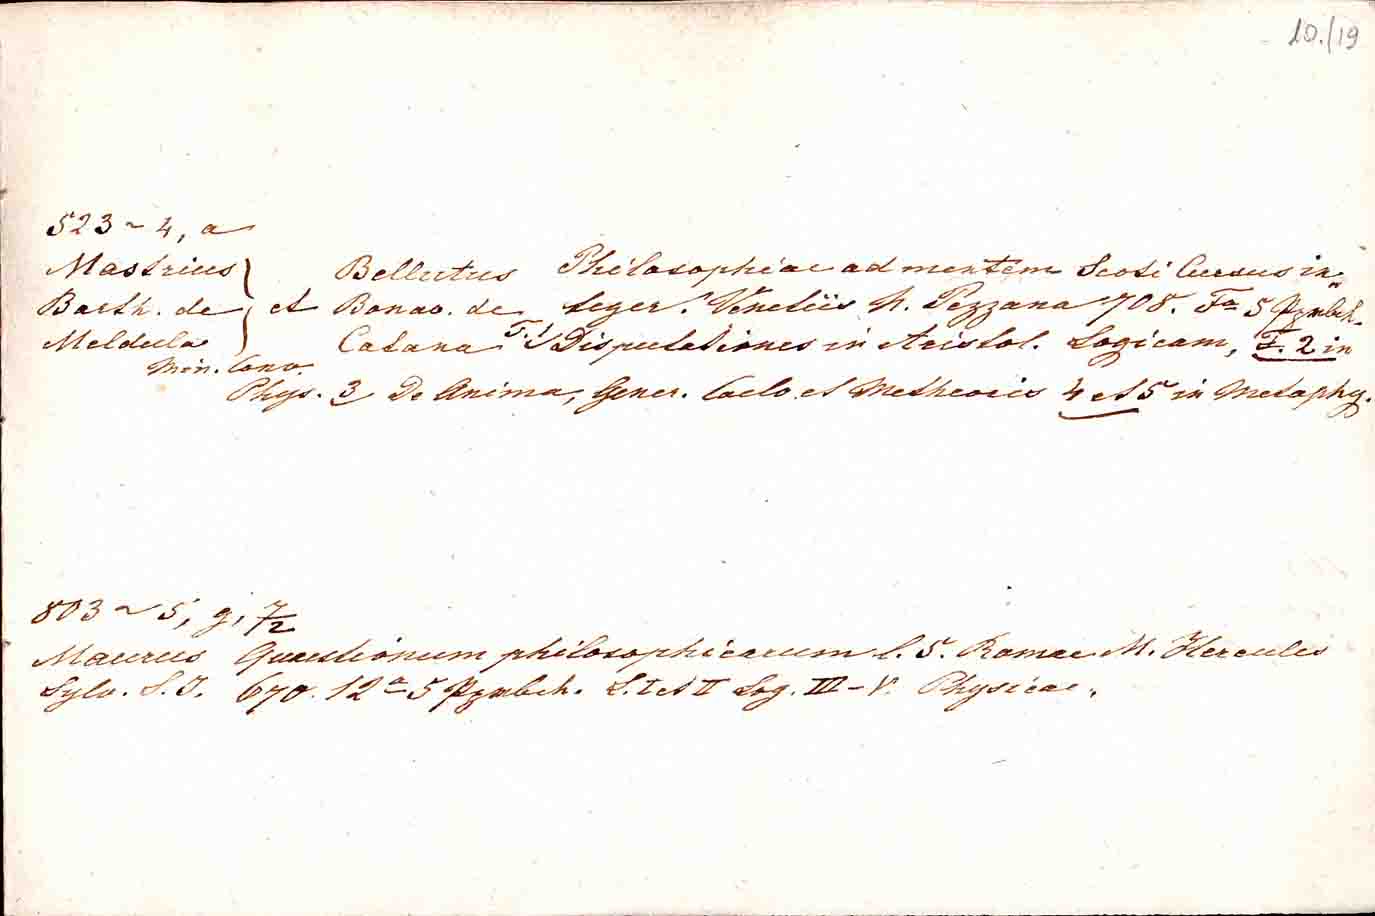 10./19
523 ~ 4, a
Mastrius } Bellutus Philosophiae ad mentem Scoti Cursus in„
Barth. de } et Bonav. de teger. Venetiis N. Pezzana 708. Fo 5 Pgmbch.
Meldula } Catana T. 1 Disputationes in Aristol. Logicam, T. 2 in
Min. Conv.
Phys. 3 De Anima, Gener. Caelo et Metheoris 4 et 5 in Metaphy.
803 ~ 5, g, 7/2
Maurus Quaestionum philosophicarum l. 5. Romae M. Hercules
Sylv. S. J. 670. 12a 5 Pgmbch. L. I et II Log. III - V. Physicae.